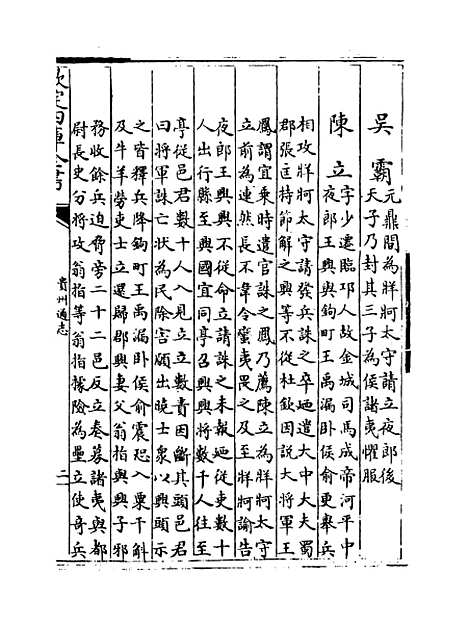 吳霸元鼎間為牂牁太守請立夜郎後
天子乃封其三子為侯諸夷懼服
陳立字少遷臨邛人故金城司馬成帝河平中
夜郎王興與鉤町王禹漏卧侯俞更舉兵
相攻牂牁太守請發兵誅之卒廼遣大中大夫蜀
郡張匡持節解之興等不從杜欽因說大將軍王
鳳謂宜乘時遣官誅之鳳乃薦陳立為牂牁太守
立前為連然長不韋令蠻夷畏之及至牂牁諭告
夜郎王興興不從命立請誅之未報廼從吏數十
人出行縣至興國宜同亭召興興將數千人往至
亭從邑君數十人入見立立數責因斷其頭邑君
曰將軍誅亡狀為民除害願出曉士衆以興頭示
之皆釋兵降鉤町王禹漏卧侯俞震恐入粟千斛
及牛羊勞吏士立還歸郡興妻父翁指與興子邪
務收餘兵迫脅旁二十二邑反立奏募諸夷與都
尉長史分將攻翁指等翁指據險為壘立使竒兵
欽定四庫全書
貴州通志
二